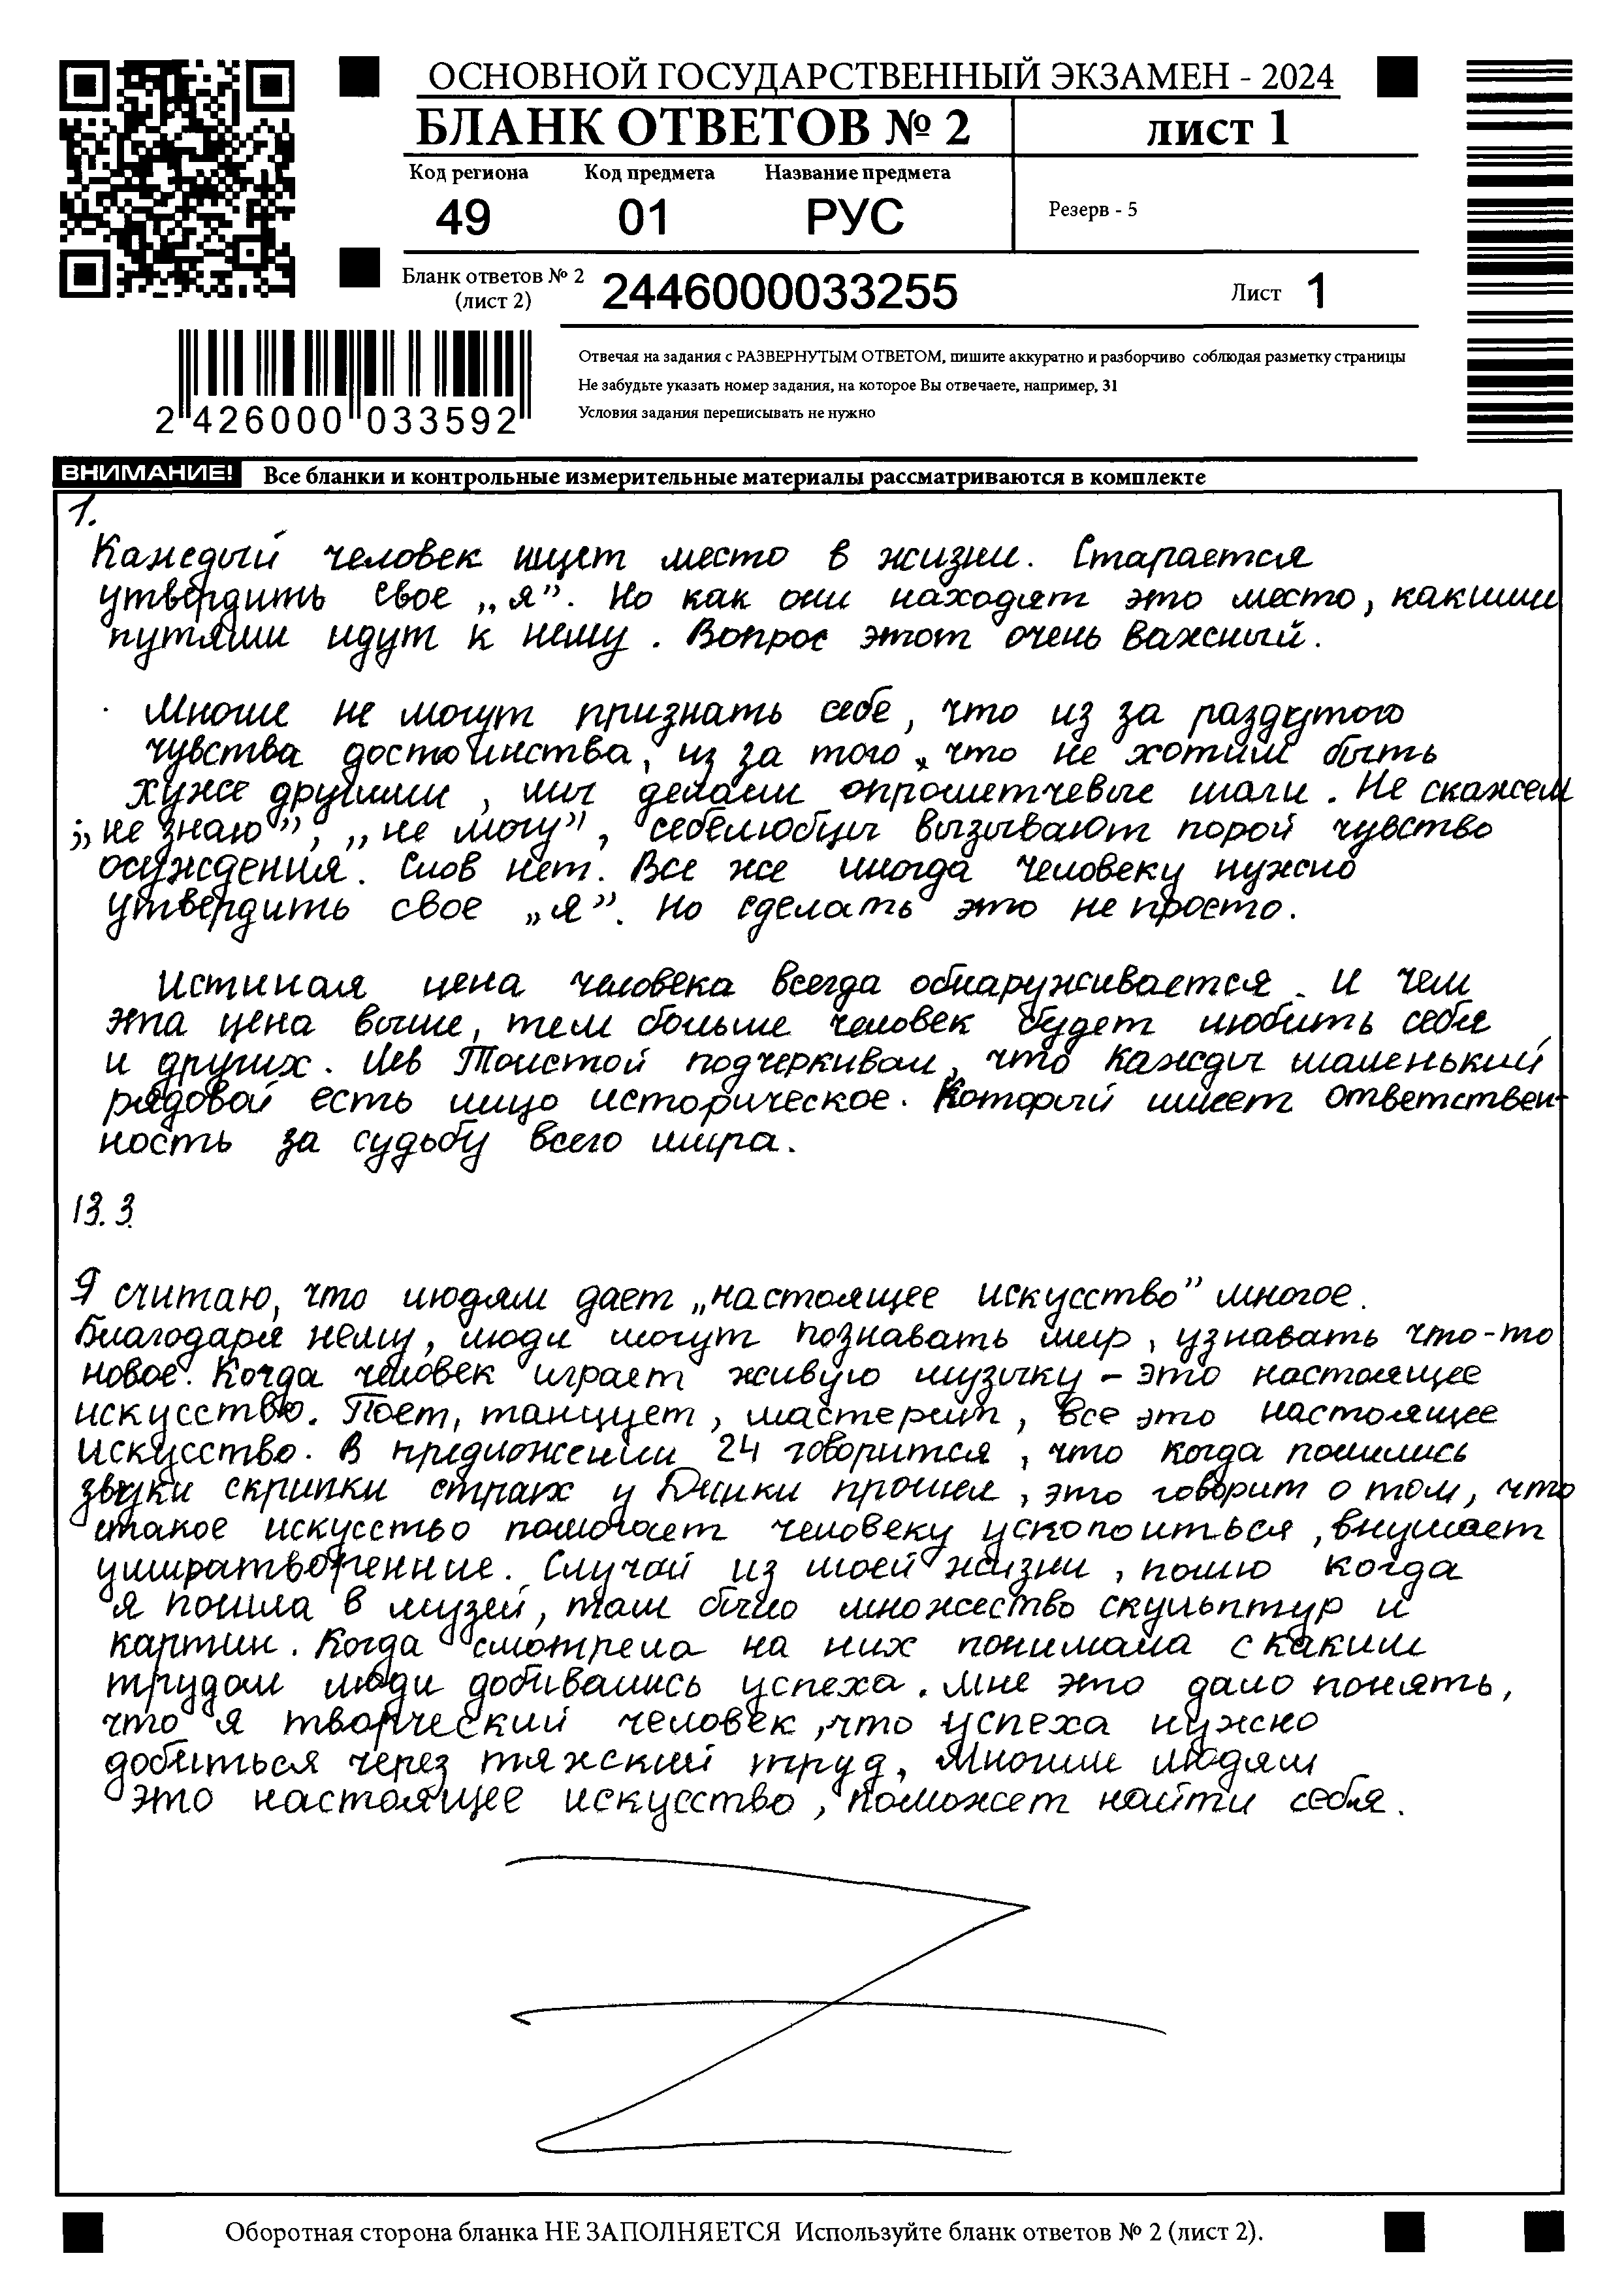 ОСНОВНОЙ ГОСУДАРСТВЕННЫЙ ЭКЗАМЕН - 2024
БЛАНК ОТВЕТОВ № 2
лист 1
Код региона
Код предмета
Название предмета
49
01
РУС
Резерв - 5
Бланк ответов № 2
(лист 2)
2446000033255
Лист 1
Отвечая на задания с РАЗВЕРНУТЫМ ОТВЕТОМ, пишите аккуратно и разборчиво соблюдая разметку страницы
Не забудьте указать номер задания, на которое Вы отвечаете, например, 31
Условия задания переписывать не нужно
2 426000 033592
ВНИМАНИЕ! Все бланки и контрольные измерительные материалы рассматриваются в комплекте
1.
Каждый человек ищет место в жизни. Старается
утвердить свое „я”. Но как они находят это место, какими
путями идут к нему. Вопрос этот очень важный.
Многие не могут признать себе, что из за раздутого
чувства достоинства, из за того, что не хотим быть
хуже другими, мы делаем опрометчевые шаги. Не скажем
„не знаю”, „не могу”, себелюбцы вызывают порой чувство
осуждения. Слов нет. Все же иногда человеку нужно
утвердить свое „я”. Но сделать это не просто.
Истиная цена человека всегда обнаруживается. И чем
эта цена выше, тем больше человек будет любить себя
и других. Лев Толстой подчеркивал, что кажды маленький
рядовой есть лицо историческое. Который имеет ответствен-
ность за судьбу всего мира.
13.3.
Я считаю, что людям дает „настоящее искусство” многое.
Благодаря нему, люди могут познавать мир, узнавать что-то
новое. Когда человек играет живую музыку – это настоящее
искусство. Поет, танцует, мастерит, все это настоящее
искусство. В предложении 24 говорится, что когда полились
звуки скрипки страх у Динки прошел, это говорит о том, что
такое искусство помогает человеку ускопоиться, внушает
умиратворенние. Случай из моей жизни, помню когда
я пошла в музей, там было множество скульптур и
картин. Когда смотрела на них понимала с каким
трудом люди добивались успеха. Мне это дало понять,
что я творческий человек, что успеха нужно
добиться через тяжский труд, Многим людям
это настоящее искусство, поможет найти себя.
Оборотная сторона бланка НЕ ЗАПОЛНЯЕТСЯ Используйте бланк ответов № 2 (лист 2).